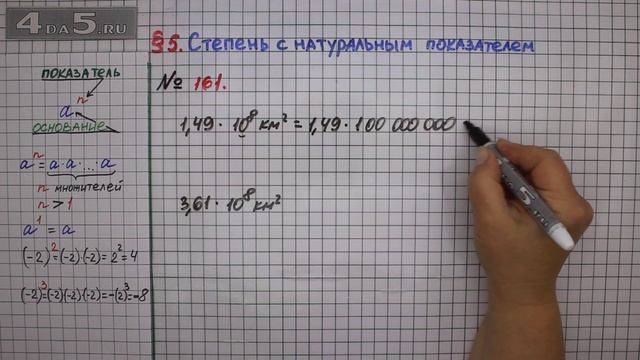 4DA5.RU
§5. Степень с натуральным показателем
№ 161.
показатель
aⁿ
основание
aⁿ = a·a·...·a
n множителей
n > 1
a¹ = a
(-2)² = (-2)·(-2) = 2² = 4
(-2)³ = (-2)(-2)·(-2) = -(2)³ = -8
1,49 · 10⁸ км² = 1,49 · 100 000 000
3,61 · 10⁸ км²
5